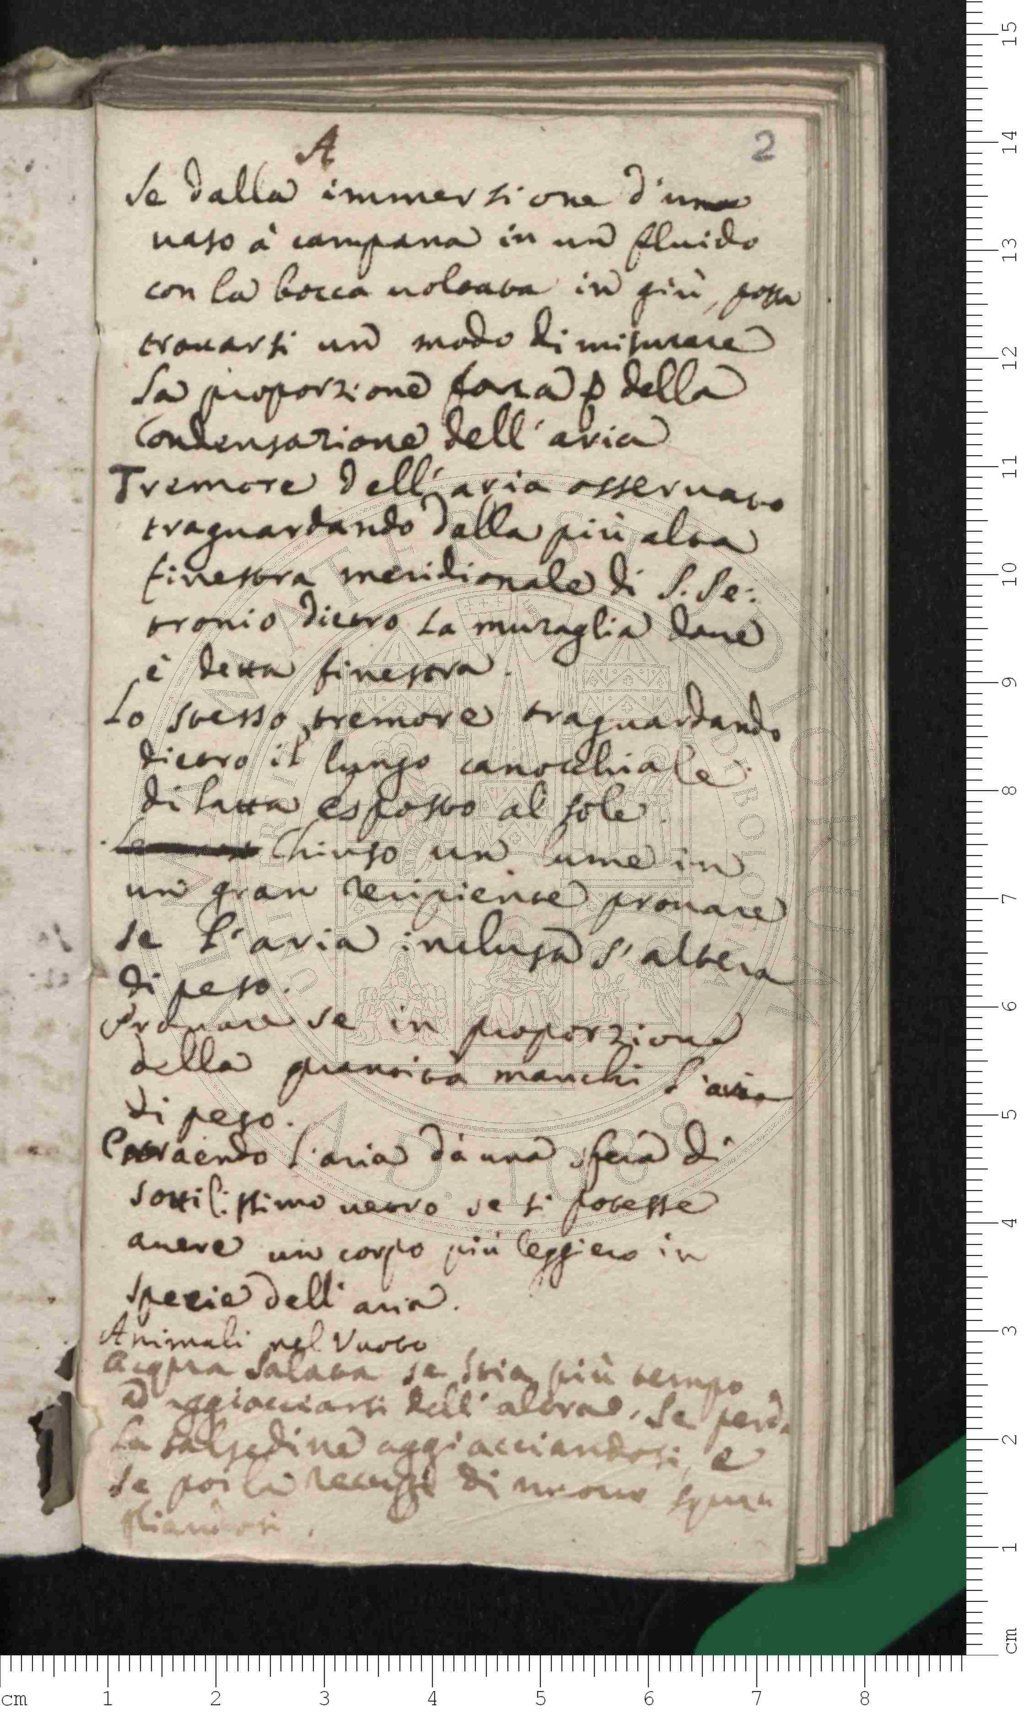 A
2
Se dalla immersione d'un
uaso à campana in un fluido
con la bocca uoltata in giù, possa
trouarsi un modo di misurare
la proporzione forza della
Condensazione dell'aria
Tremore dell'aria osseruato
traguardando dalla più alta
finestra meridionale di S. Pe:
tronio dietro la muraglia doue
è detta finestra.
Lo stesso tremore traguardando
dietro il lungo canocchiale
di latta esposto al sole.
Chiuso un lume in
un gran recipiente prouare
se l'aria inclusa s'altera
di peso.
Prouare se in proporzione
della quantità manchi l'aria
di peso.
Estraendo l'aria da una sfera di
sottilissimo uetro se si potesse
auere un corpo più leggiero in
spezie dell'aria.
Animali nel Vuoto
Acqua salata se stia più tempo
ad aggiacciarsi dell'altra. Se perda
la salsedine aggiacciandosi, e
se poi la recuperi di nuouo squa
gliandosi.